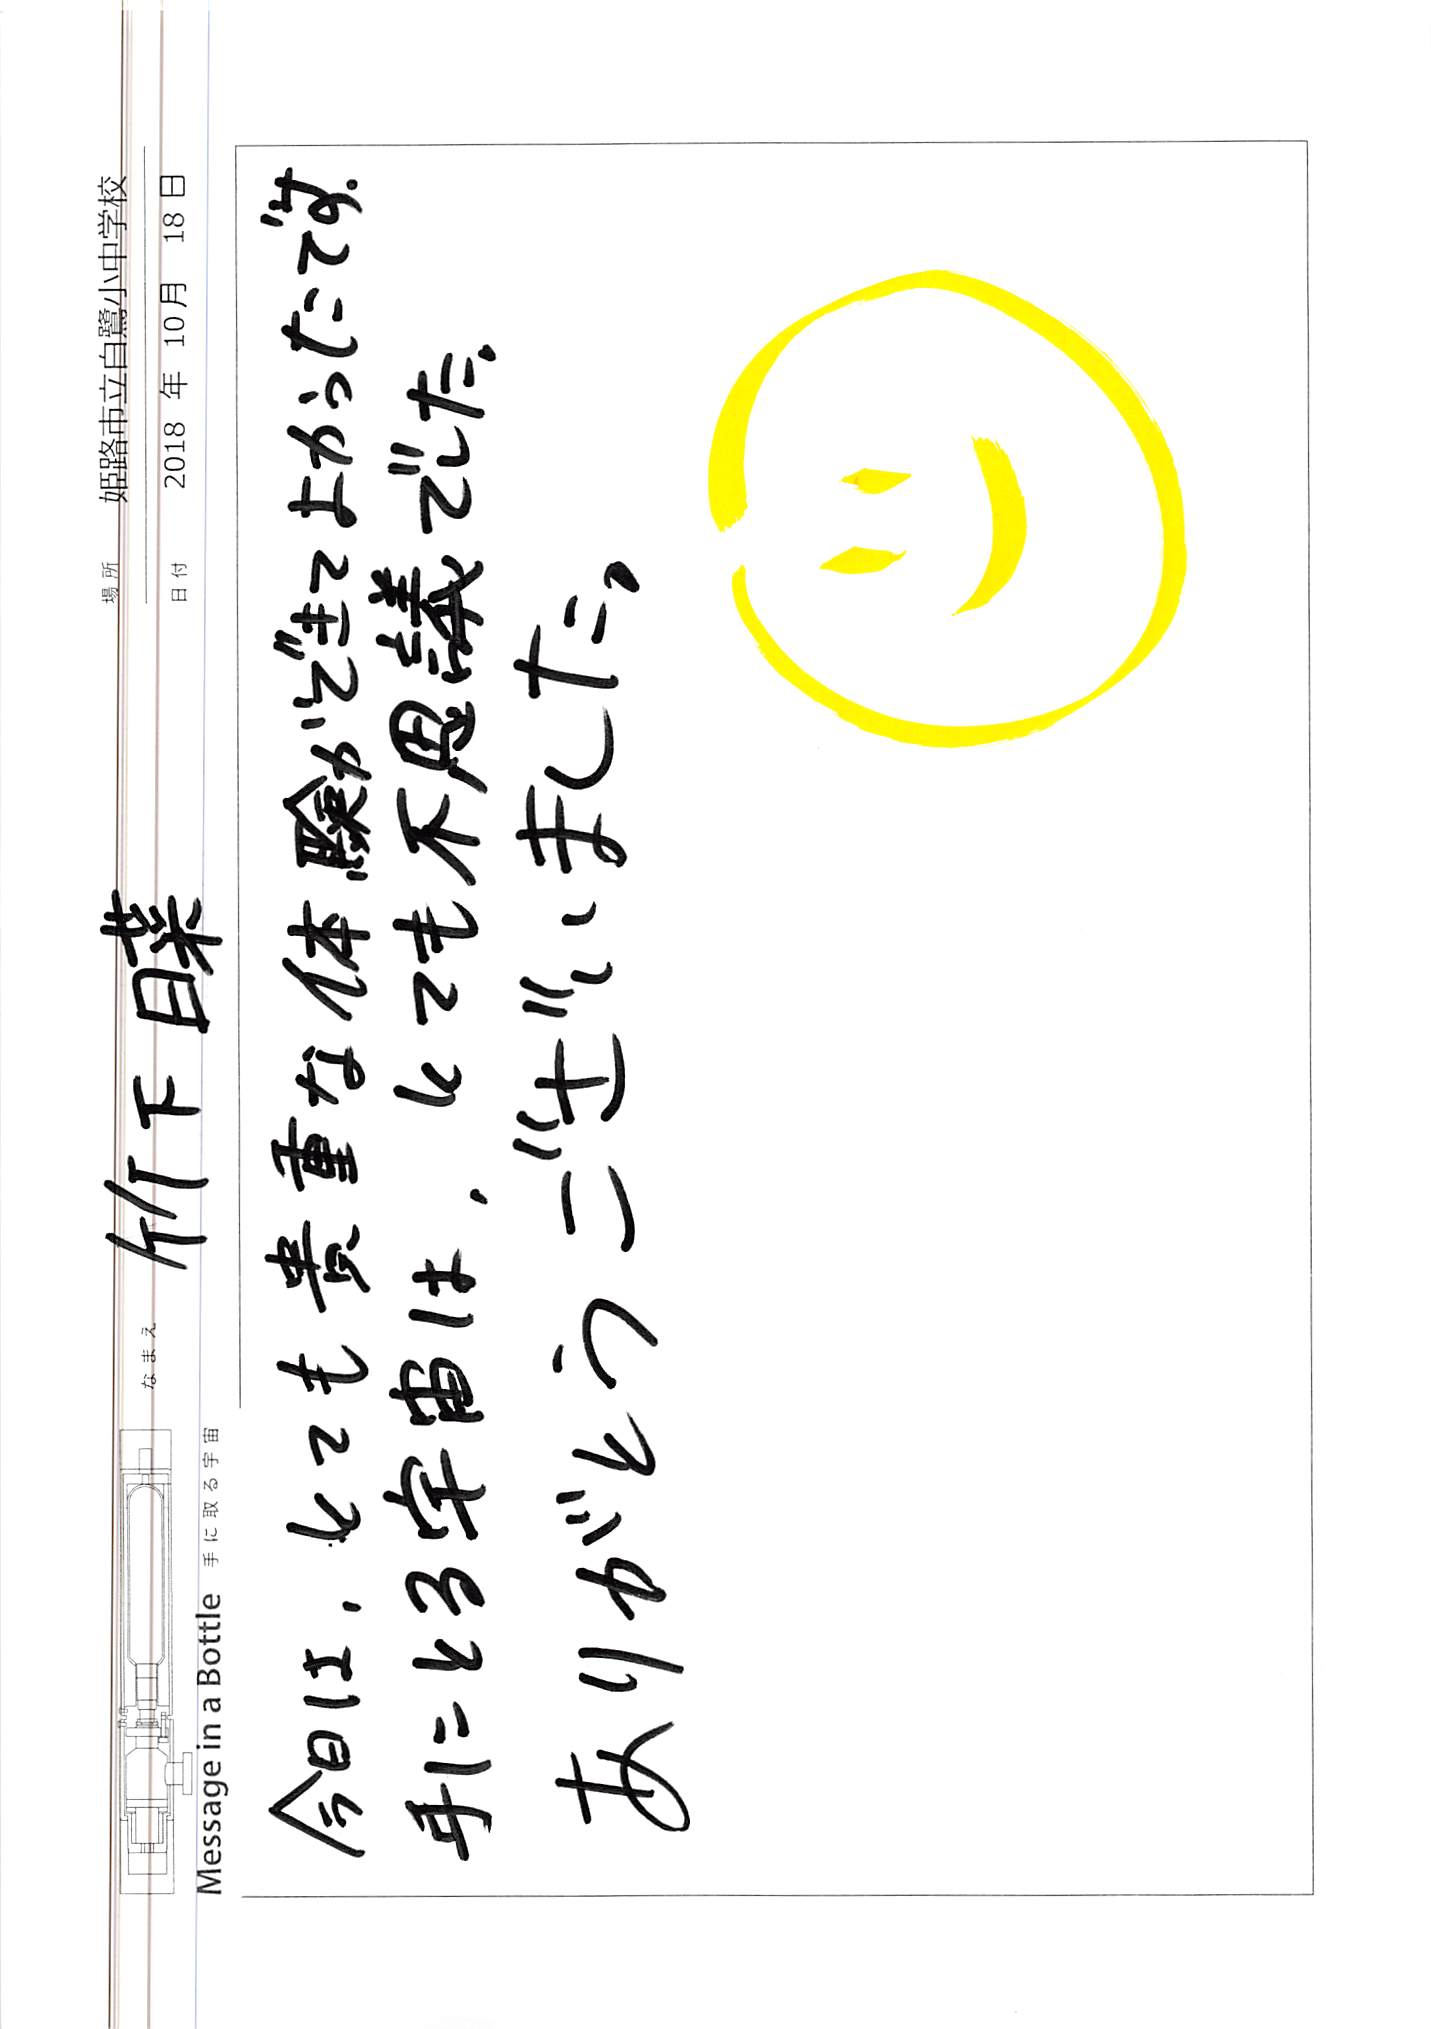 Message in a Bottle 手に取る宇宙
なまえ 竹下 陽菜
場所 姫路市立白鷺小中学校
日付 2018 年 10 月 18 日
今日は、とても貴重な体験ができてよかったです。
手にとる宇宙は、とても不思議でした。
ありがとうございました。